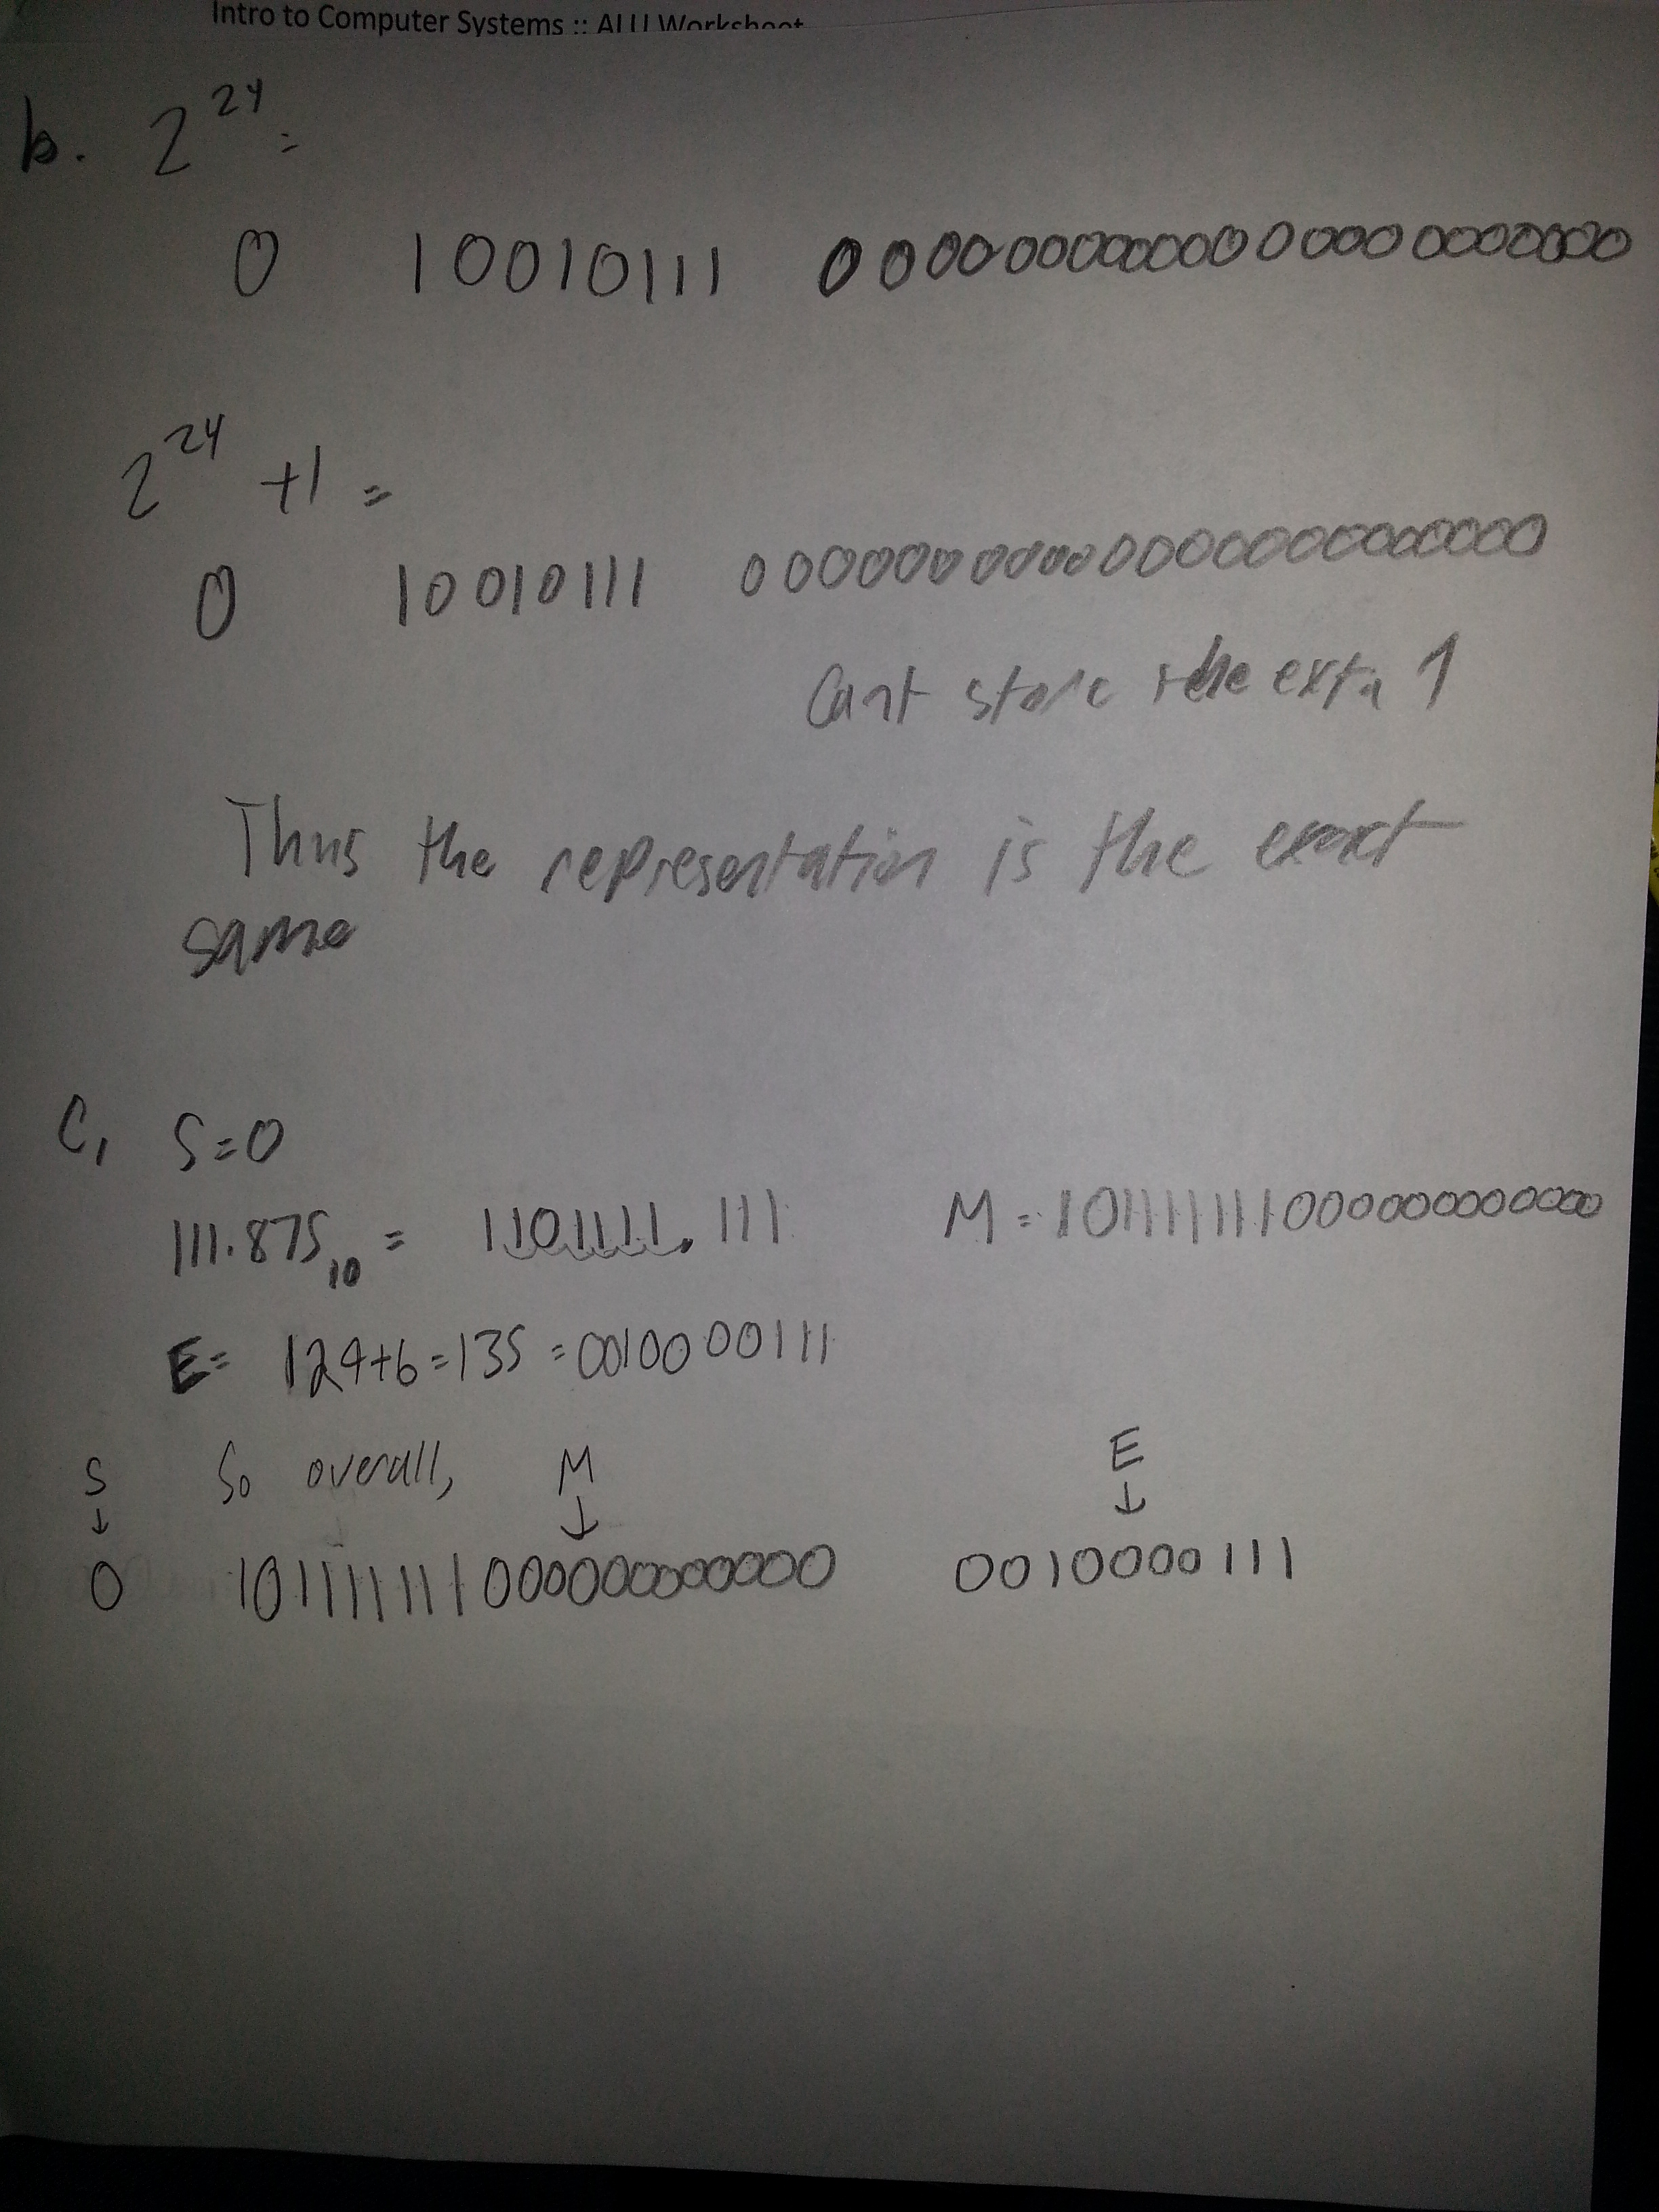 Intro to Computer Systems :: ALU Worksheet
b. 2^24 =
0 10010111 00000000000000000000000
2^24 +1 =
0 10010111 00000000000000000000000
Cant store the extra 1
Thus the representation is the exact
same
C, S=0
111.875₁₀ = 1101111.111 M = 10111111100000000000
E = 129+6=135 =0010000111
S So overall, M E
↓ ↓ ↓
0 10111111100000000000 0010000111